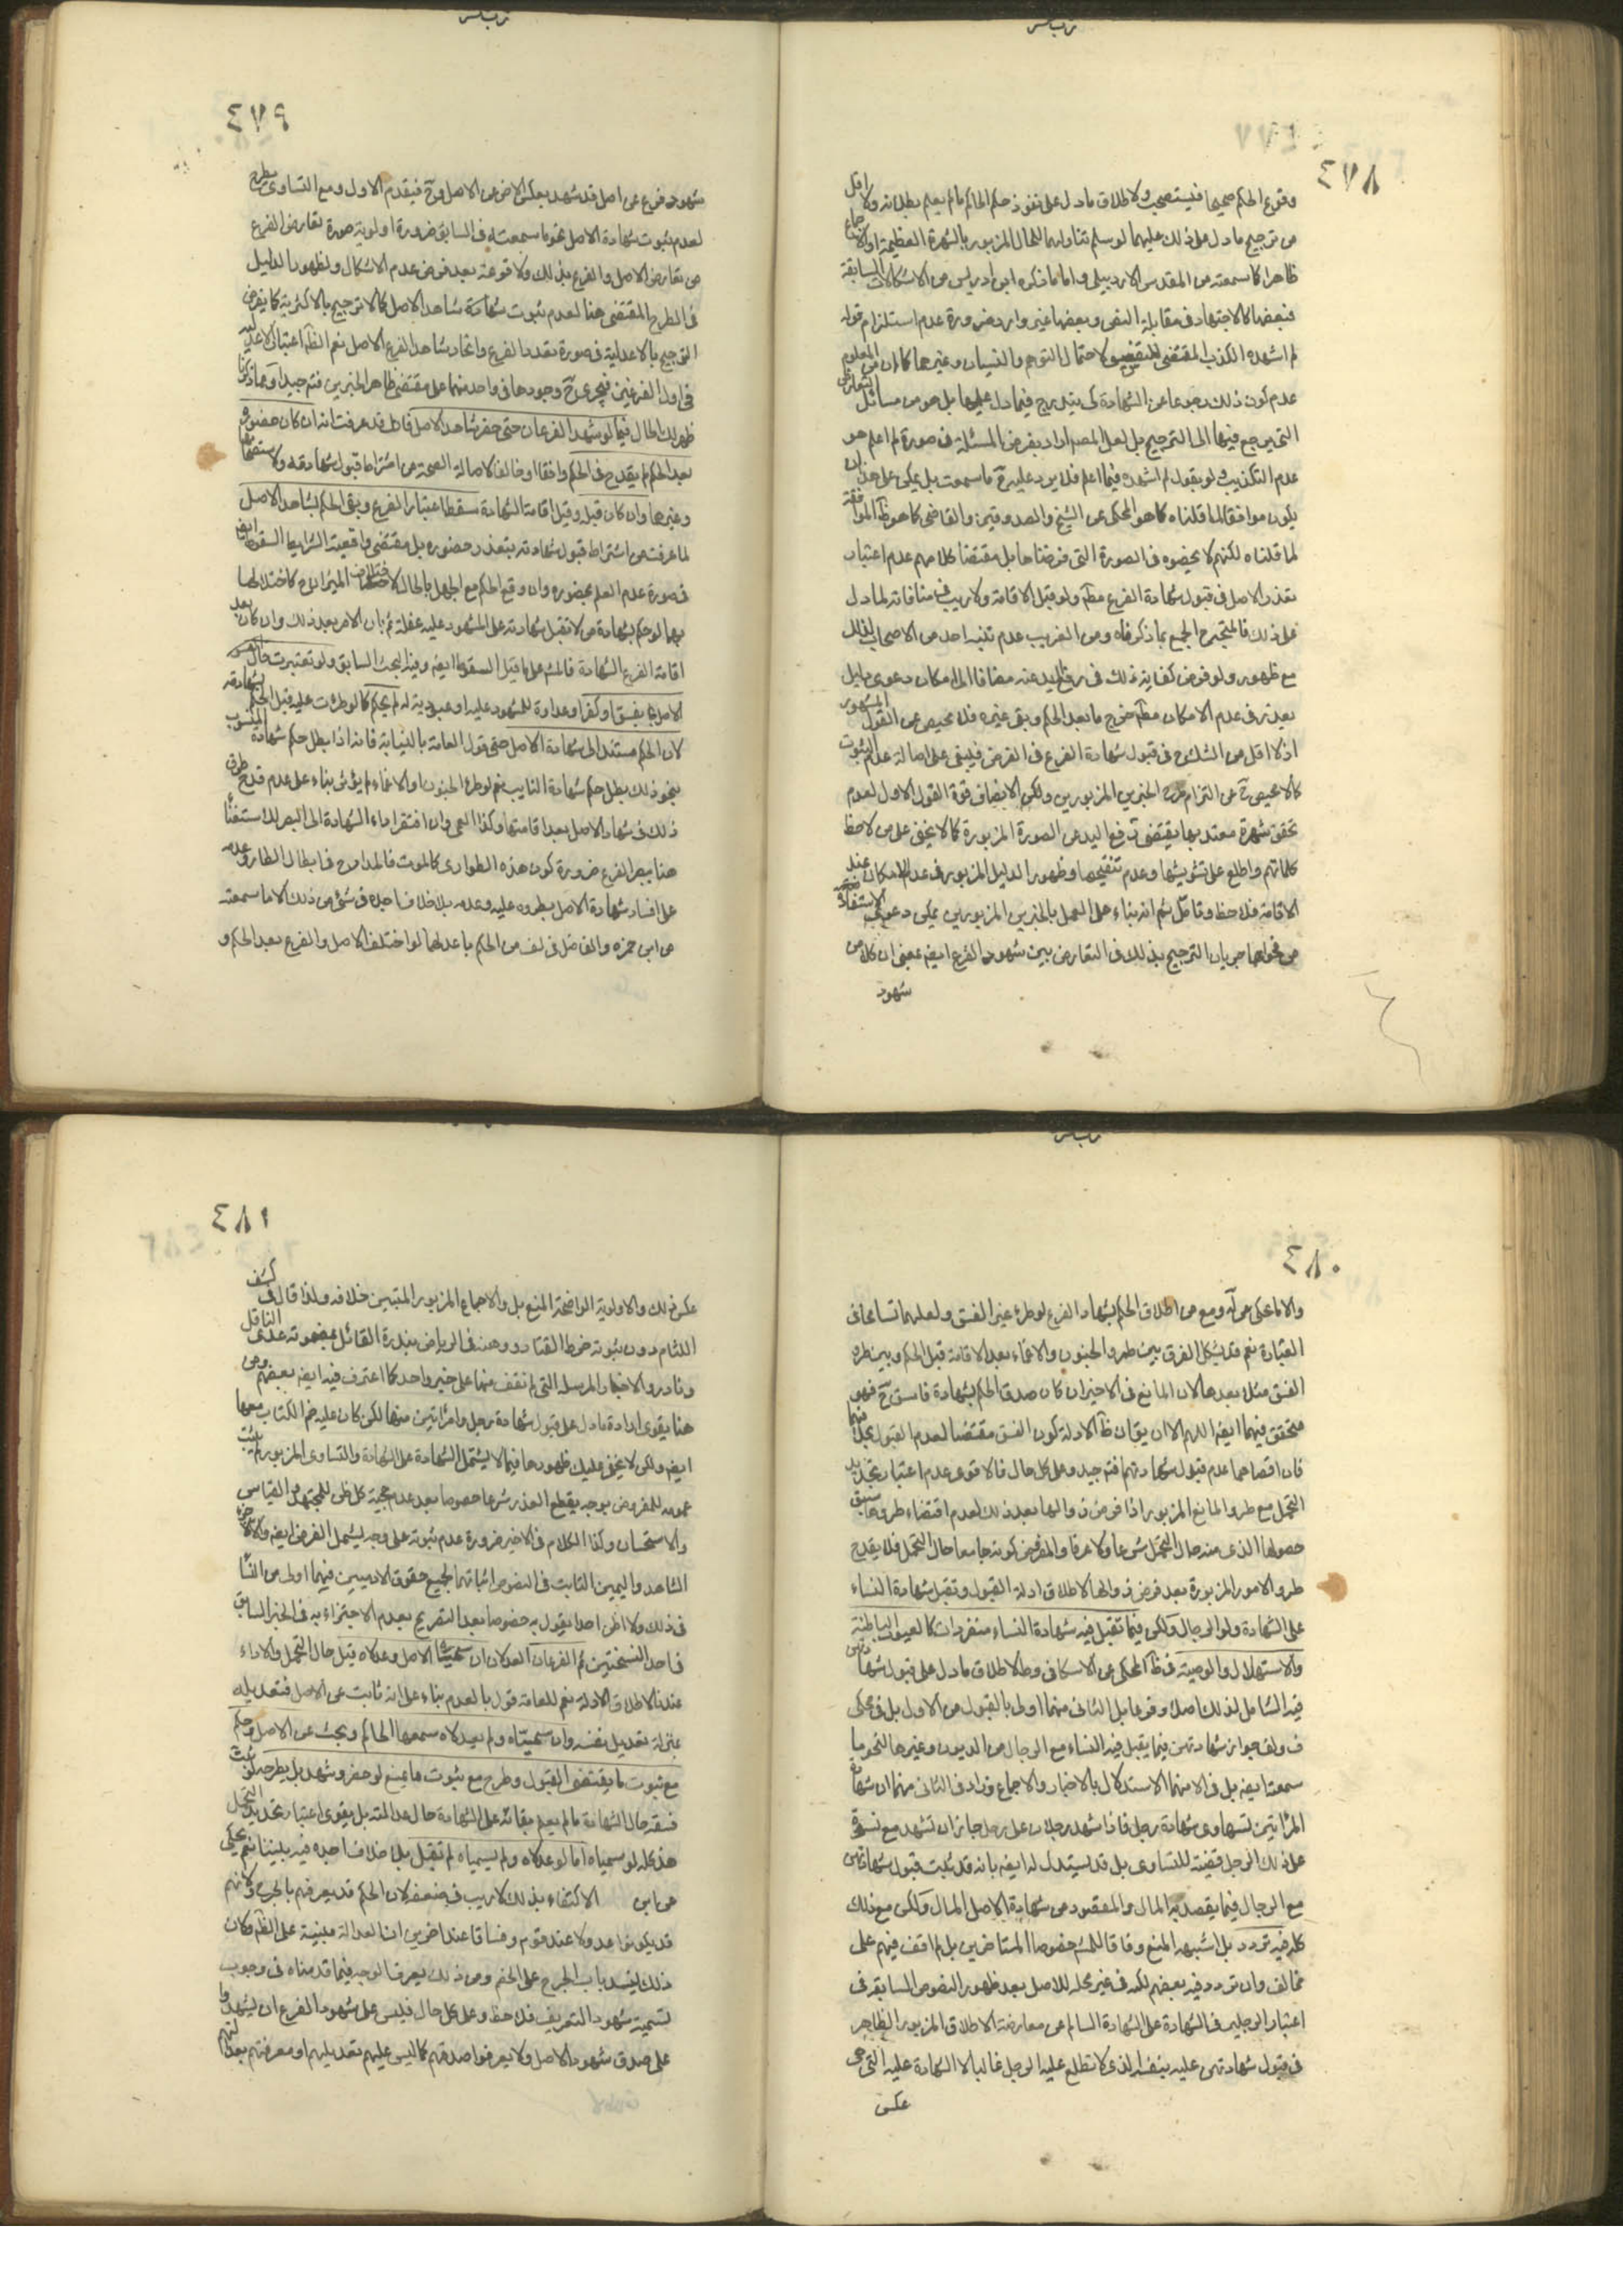 ٤٧٨
وقوع الحكم صحيحا فيستصحب ولاطلاق ما دل على نفوذ حكم الحاكم ما لم يعلم بطلانه ولا اقل
من ترجيح ما دل على ذلك عليهما لو سلم تناولهما للحال المزبور بالشهرة العظيمة او الاجماع
ظاهرا كما سمعته من المقدس الاردبيلي واما ما ذكره ابن ادريس من الاشكالات السابقة
فبعضها كالاجتهاد في مقابلة النص وبعضها غير وارد ضرورة عدم استلزام قوله
لم اشهده الكذب المقتضي للتفسيق لاحتمال التوهم والنسيان وغيرهما كما ان من المعلوم
عدم كون ذلك رجوعا عن الشهادة كي يندرج فيما دل عليها بل هو من مسائل التعارض
التي يرجع فيها الى الترجيح بل لعل المصنف اراد بفرض المسئلة في صورة لم اعلم هو
عدم التكذيب لو بقول لم اشهده فيما اعلم فلا يرد عليه ح ما سمعت بل يمكن على هذا ان
يكون موافقا لما قلناه كما هو المحكي عن الشيخ والصدوقين والقاضي كما هو ظ الموافقة
لما قلناه لكنهم لا يخصوه في الصورة التي فرضناها بل مقتضا كلامهم عدم اعتبار
تعذر الاصل في قبول شهادة الفرع مطلقا ولو قبل الاقامة ولا ريب في منافاته لما دل
على ذلك فالمتجه ح الجمع بما ذكرناه ومن الغريب عدم تنبه احد من الاصحاب لذلك
مع ظهوره ولو فرض كفاية ذلك في رفع اليد عنه مضافا الى امكان دعوى دليل
يعذر في عدم الامكان مطلقا خرج ما بعد الحكم وبقي غيره فلا محيص عن القول المشهور
اذ لا اقل من الشك ح في قبول شهادة الفرع في الفرض فيبقى على اصالة عدم الثبوت
كما لا محيص ح عن التزام طرح الخبرين المزبورين ولكن الانصاف قوة القول الاول لعدم
تحقق شهرة معتد بها يقتضي رفع اليد عن الصورة المزبورة كما لا يخفى على من لاحظ
كلماتهم واطلع على تشويشها وعدم تنقيحها وظهور الدليل المزبور في عدم الامكان عند
الاقامة فلاحظ وتأمل ثم انه بناء على العمل بالخبرين المزبورين يمكن دعوى الاستفادة
من فحواهما جريان الترجيح بذلك في التعارض بين شهود الفرع ايضا بمعنى ان كلا من
شهود
٤٧٩
شهود فرع عن اصل قد شهد بعكس الاخر عن الاصل ح فيقدم الاول ومع التساوى يطرح
لعدم ثبوت شهادة الاصل نحو ما سمعته في السابق ضرورة اولوية صورة تعارض الفرع
من تعارض الاصل والفرع بذلك ولا قوعنه بعد فرض عدم الاشكال ولظهور الدليل
في الطرح المقتضي هنا لعدم ثبوت شهادة شاهد الاصل كما لا ترجيح بالاكثرية كما يفرض
الترجيح بالاعدلية في صورة تعدد الفرع واتحاد شاهد الفرع الاصل نعم الظ اعتبار الاعدلية
في اول الفرعين فيجري ح وجودها في واحد منهما على مقتضى ظاهر الخبرين فتم جيدا ومما ذكرنا
ظهر لك الحال فيما لو شهد الفرعان حتى حضر شاهد الاصل فانك قد عرفت انه ان كان حضوره
بعد الحكم لم يقدح في الحكم وافقا او خالفا لاصالة الصحة من اشتراط قبول شهادته ولاستصحابها
وغيرها وان كان قبله وقبل اقامة الشهادة سقط اعتبار الفرع وبقى الحكم لشاهد الاصل
لما عرفت من اشتراط قبول شهادته بتعذر حضوره بل مقتضى واقعية الشرايط السقوط ايضا
في صورة عدم العلم بحضوره وان وقع الحكم مع الجهل بالحال لاختلاف الميزان ح كاختلالها
بما لو حكم بشهادة من لا تقبل شهادته على المشهود عليه غفلة ثم بان الامر بعد ذلك وان كان بعد
اقامة الفرع الشهادة فالمش على ما قيل السقوط ايضا وفيه البحث السابق ولو تغيرت حال
الاصل بفسق او كفر او عداوة للمشهود عليه او عبودية له لم يحكم كما لو طرئت عليه قبل الحكم بشهادته
لان الحكم مستند الى شهادة الاصل حتى قول العامة بالنيابة فانه اذا بطل حكم شهادة المنوب
بنحو ذلك بطل حكم شهادة النايب نعم لو طرء الجنون او الاغماء لم يؤثر بناء على عدم قدح طرو
ذلك في شهاد الاصل بعد اقامتها وكذا العمى وان افتقر اداء الشهادة الى البصر للاستغناء
هنا ببصر الفرع ضرورة كون هذه الطوارى كالموت فالمدار ح في ابطال الطارو وعدمه
على افساد شهادة الاصل بطروه عليه وعدمه بلا خلاف اجده في شئ من ذلك الا ما سمعته
من ابن حمزه والفاضل في لف من الحكم باعدلهما لو اختلف الاصل والفرع بعد الحكم و
٤٨٠
والا ما عكى من آه ومع من اطلاق الحكم بشهاد الفرع لو طرء غير الفسق ولعلهما تسامحا في
العبارة نعم قد يشكل الفرق بين طرو الجنون والاغماء بعد الاقامة قبل الحكم وبين طرو
الفسق مثلا بعدها لان المانع في الاخير ان كان صدق الحكم بشهادة فاسق ح فهو
متحقق فيهما ايضا اللهم الا ان يق ان ظ الادلة كون الفسق مقتضا لعدم القبول بخلافهما
فان اقصاهما عدم قبول شهادتهم فتم جيد وعلى كل حال فالاقوى عدم اعتبار تجديد
التحمل مع طرو المانع المزبور اذا فرض زوالها بعد ذلك لعدم اقتضاء طروها سبق
حصولها الذي منه حال التحمل شرعا ولا عرفا والمفروض كونه جامعا حال التحمل فلا يقدح
طرو الامور المزبورة بعد فرض زوالها لاطلاق ادلة القبول وتقبل شهادة النساء
على الشهادة ولو الرجال ولكن فيما تقبل فيه شهادة النساء منفردات كالعيوب الباطنة
والاستهلال والوصية في ظ المحكي عن الاسكافي وط لاطلاق ما دل على قبول شهادتهن
فيه الشامل لذلك اصلا وفرعا بل الثاني منهما اولى بالقبول من الاول بل في محكي
ف ولف جواز شهادتهن فيما يقبل فيه النساء مع الرجال من الديون وغيرها لنحو ما
سمعته ايضا بل في الا منهما الاستدلال بالاخبار والاجماع وزاد في الثاني منهما ان شهادة
المرأتين تساوى شهادة رجل فاذا شهد رجلان على رجل جاز ان تشهد مع نسوة
على ذلك الرجل قضية للتساوى بل قد يستدل له ايضا بانه قد ثبت قبول شهادتهن
مع الرجال فيما يقصد به المال والمقصود من شهادة الاصل المال ولكن مع ذلك
كله فيه تردد بل اشبهه المنع وفاقا للمش خصوصا المتاخرين بل لم اقف فيهم على
مخالف وان تردد فيه بعضهم لكنه في غير محله للاصل بعد ظهور النصوص السابقة في
اعتبار الرجلين في الشهادة على الشهادة السالم عن معارضة الاطلاق المزبور الظاهر
في قبول شهادتهن عليه بنفسه الذي لا تطلع عليه الرجل غالبا لا الشهادة عليه التي هي
عكس
٤٨١
عكس ذلك والاولوية الواضحة المنع بل والاجماع المزبور المتبين خلافه ولذا قال في كشف
اللثام دون ثبوته خرط القتاد ووهنه في الرياض بندرة القائل بمضمونه عدى الناقل
ونادر والاخبار المرسلة التي لم نقف منها على خبر واحد كما اعترف فيه ايضا بعضهم ومن
هنا يقوى ارادة ما دل على قبول شهادة رجل وامرأتين منها لكن كان عليه ضم الكتاب معها
ايضا ولكن لا يخفى عليك ظهورها فيما لا يشتمل الشهادة على الشهادة والتساوى المزبور لم يثبت
عمومه للمفروض بوجه يقطع العذر شرعا خصوصا بعد عدم حجية كل ظن للمجتهد والقياس
والاستحسان وكذا الكلام في الاخير ضرورة عدم ثبوته على وجه يشمل الفرض ايضا والا لاجزء
الشاهد واليمين الثابت في النصوص اثباتهما لجميع حقوق الادميين فيهما اولى من النساء
في ذلك ولا اظن احدا يقول به خصوصا بعد التصريح بعدم الاجتزاء به في الخبر السابق
في احد النسختين ثم الفرعان العدلان ان سميا الاصل وعدلاه قبل حال التحمل والاداء
عندنا لاطلاق الادلة نعم للعامة قول بالعدم بناء على انه نائب عن الاصل فتعديله
بمنزلة تعديل نفسه وان سمياه ولم يعدلاه سمعها الحاكم وبحث عن الاصل وحكم
مع ثبوت ما يقتضي القبول وطرح مع ثبوت ما يمنع لو حضر وشهد بل يطرح لو ثبت
فسقه حال الشهادة ما لم يعلم بقائه على الشهادة حال عدالته بل يقوى اعتبار تجديد التحمل
هذا كله لو سمياه اما لو عدلاه ولم يسمياه لم تقبل بلا خلاف اجده فيه بيننا نعم يحكى
عن ابن الاكتفاء بذلك لا ريب في ضعفه لان الحكم قد يعرفهم بالجرح ولانهم
قد يكونوا عدولا عند قوم وفساقا عند اخرين اذ العدالة مبنية على الظ وكان
ذلك ليفسد باب الجرح على الخصم ومن ذلك يعرف الوجه فيما قدمناه في وجوب
تسمية شهود التعريف فلاحظ وعلى كل حال فليس على شهود الفرع ان يشهدوا
على صدق شهود الاصل ولا يعرفوا صدقهم كما ليس عليهم تعديلهم او معرفتهم بعدالتهم